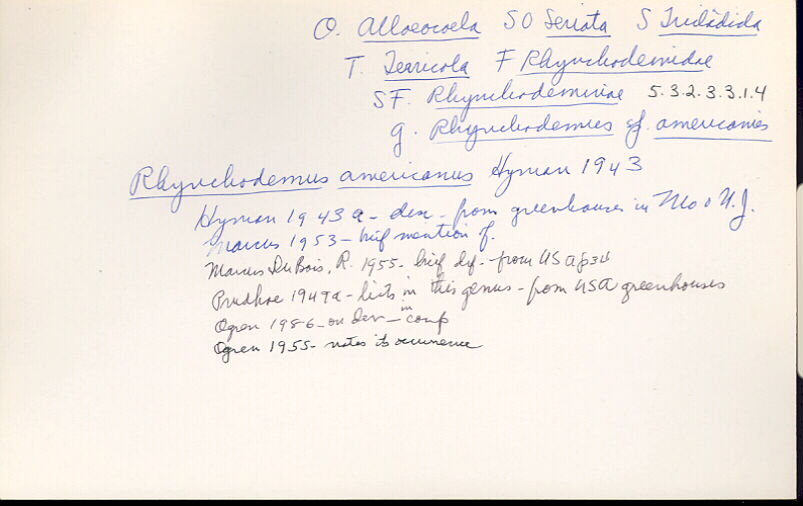 O. Alloeocoela SO Seriata S Tricladida
T. Terricola F Rhynchodemidae
SF. Rhynchodeminae 5.3.2.3.3.1.4
g. Rhynchodemus sp. americanus
Rhynchodemus americanus Hyman 1943
Hyman 1943a - desc - from greenhouses in Mo & N.J.
Marcus 1953 - brief mention of.
Marcus, DuBois, R. 1955 - brief def - from USA p34
Prudhoe 1949a - lists in this genus - from USA greenhouses
Ogren 1986 - on dev - in comp
Ogren 1955 - notes its occurrence